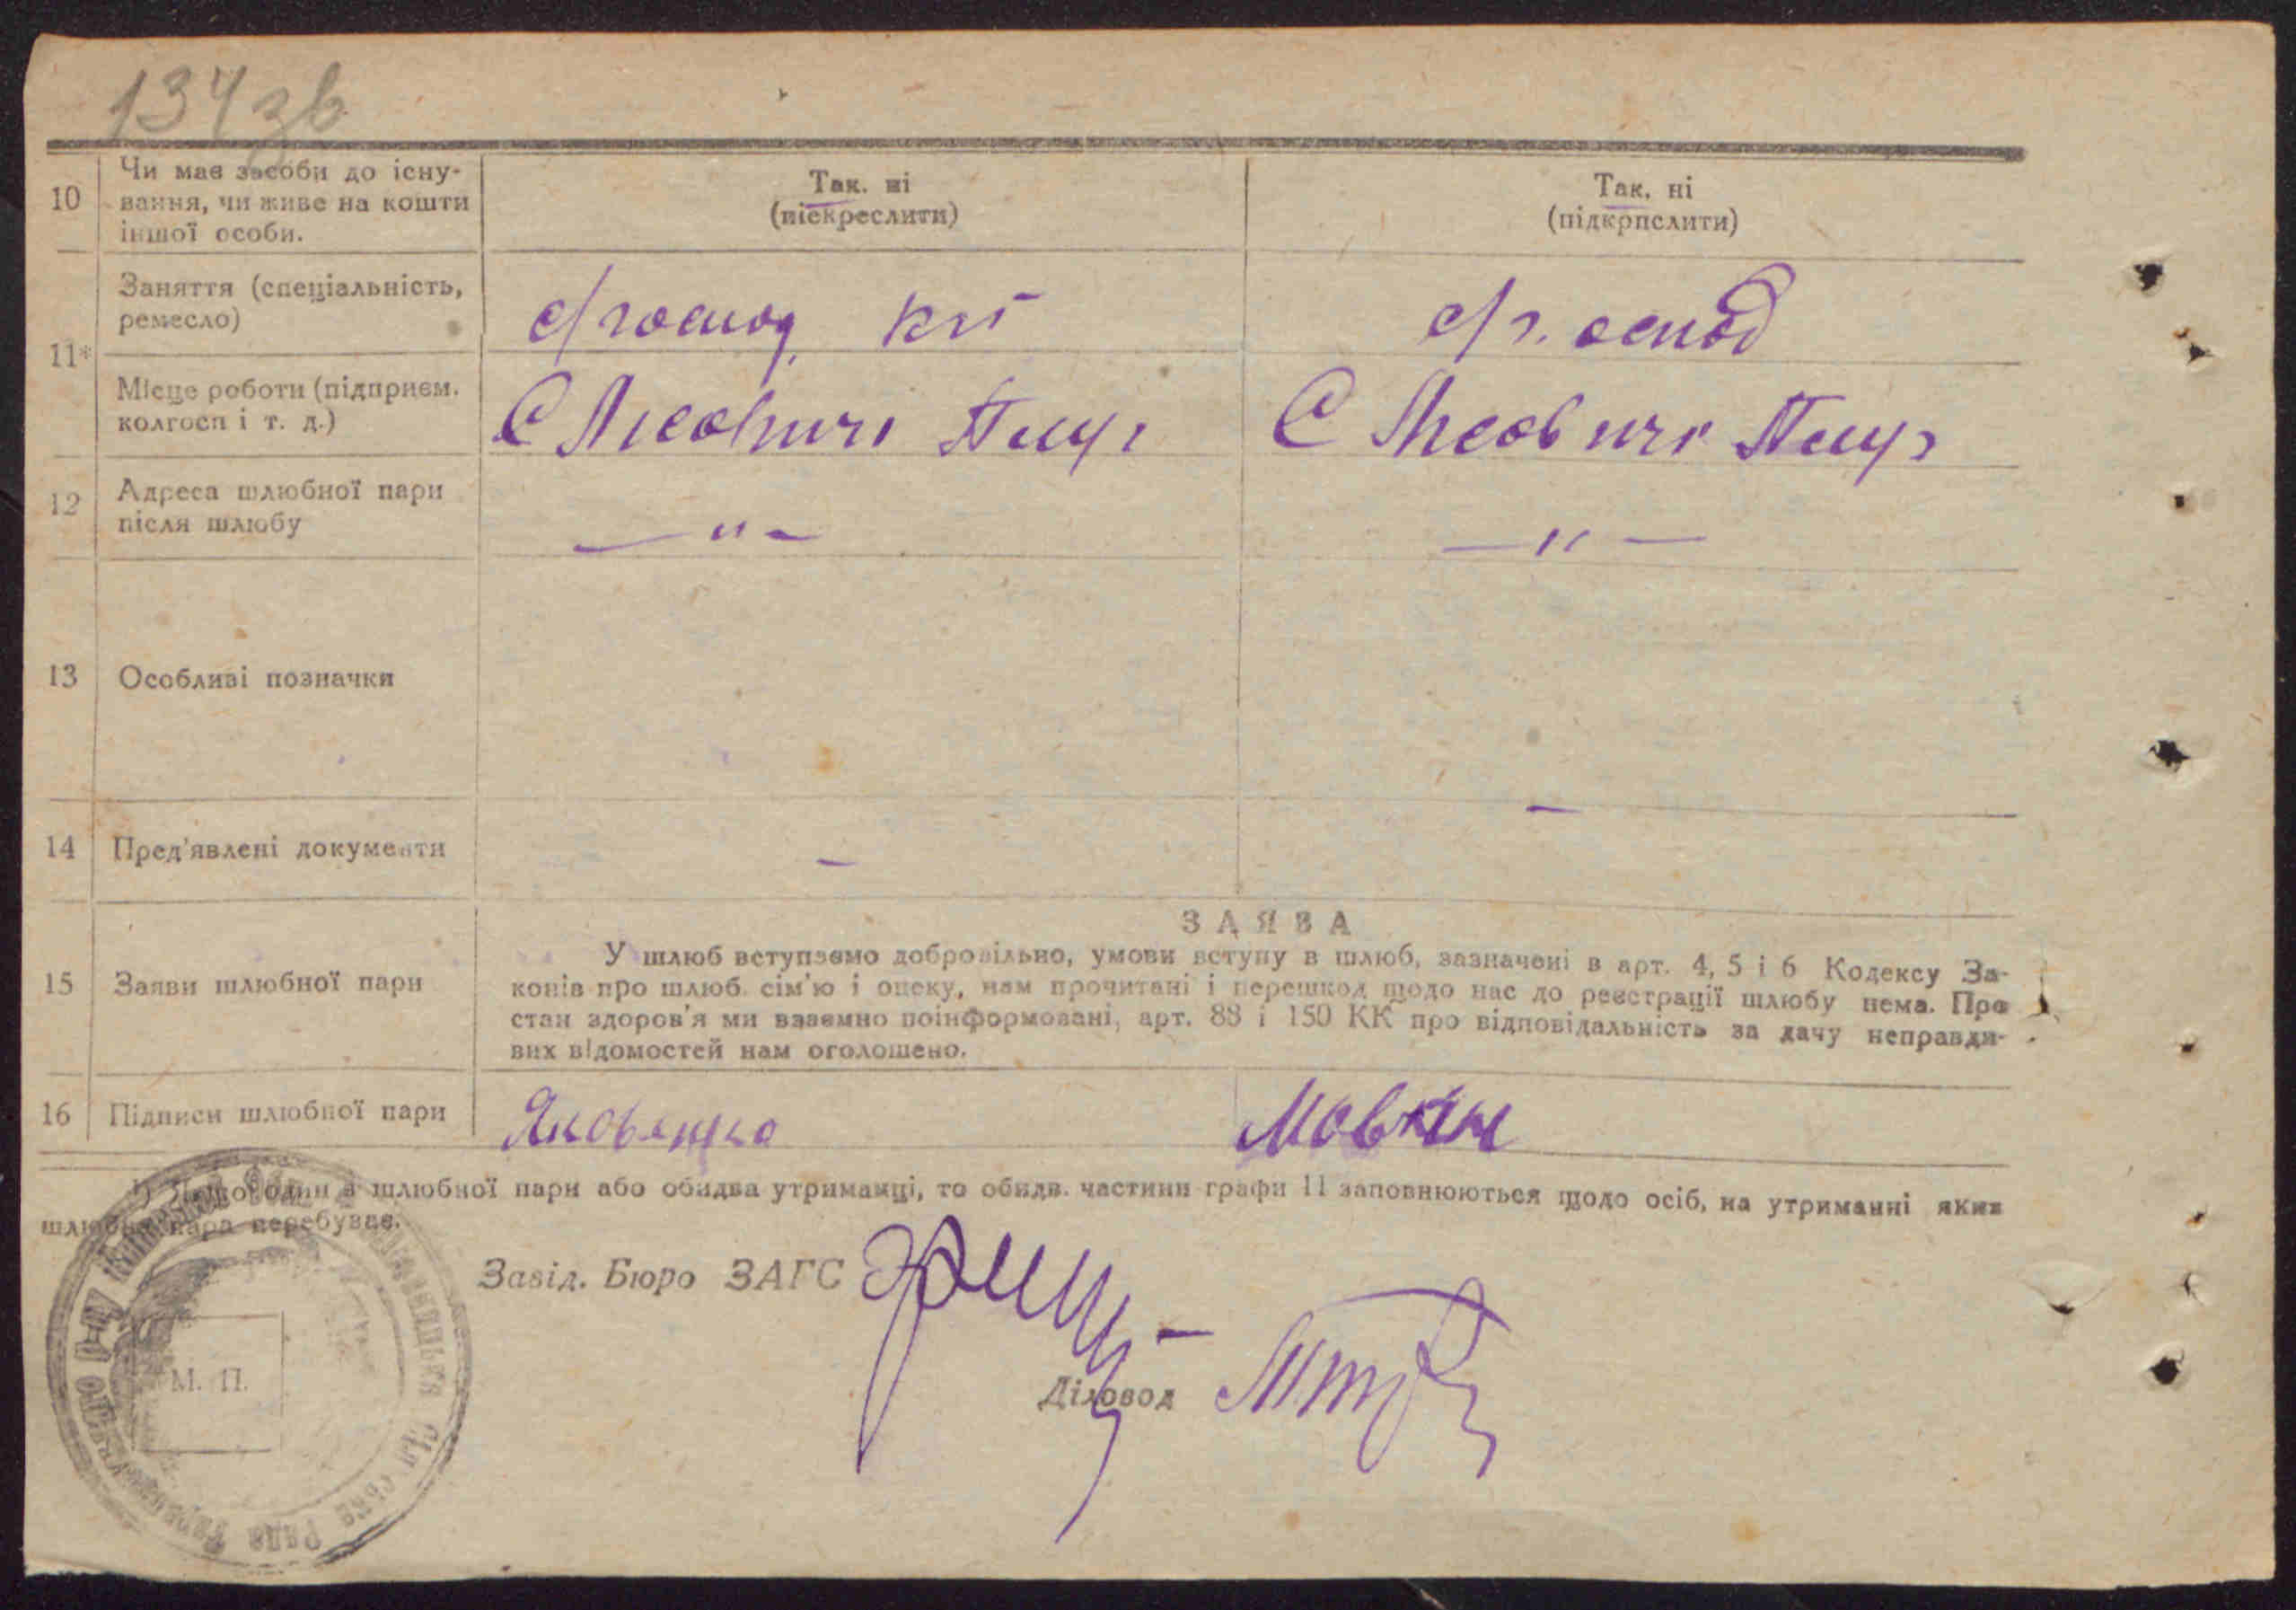 134 зв
10 Чи має засоби до існу-
вання, чи живе на кошти
іншої особи.
Так. ні
(піскреслити)
Так, ні
(підкрпслити)
11*
Заняття (спеціальність,
ремесло)
с/господ. к-п
с/г. оспод
Місце роботи (підприєм.
колгосп і т. д.)
С Лісовичі Плуг
С Лісовичі Плуг
12 Адреса шлюбної пари
після шлюбу
— " —
— " —
13 Особливі позначки
14 Пред'явлені документи
–
–
15 Заяви шлюбної пари
ЗАЯВА
У шлюб вступаємо добровільно, умови вступу в шлюб, зазначені в арт. 4, 5 і 6 Кодексу За-
конів про шлюб. сім'ю і опеку, нам прочитані і перешкод щодо нас до реєстрації шлюбу нема. Про
стан здоров'я ми взаємно поінформовані, арт. 88 і 150 КК про відповідальність за дачу неправди-
вих відомостей нам оголошено.
16 Підписи шлюбної пари
Яковенко
Мовкян
шлюбної пари або обидва утриманці, то обидв. частини графи 11 заповнюються щодо осіб, на утриманні яких
шлюбна пара перебуває.
Завід. Бюро ЗАГС
Діловод
М. П.